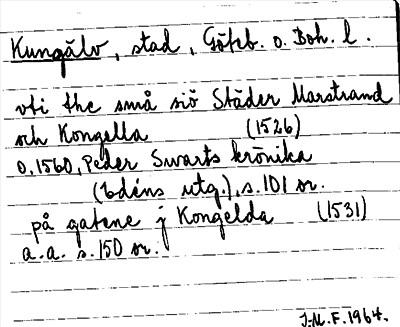 Kungälv, stad, Göteb. o. Boh. l.
vti the små siö Städer Marstrand
och Kongella (1526)
o. 1560, Peder Swarts krönika
(Edéns utg.), s. 101 nr.
på gatene j Kongelda (1531)
a.a. s. 150 nr.
J.M.F. 1964.